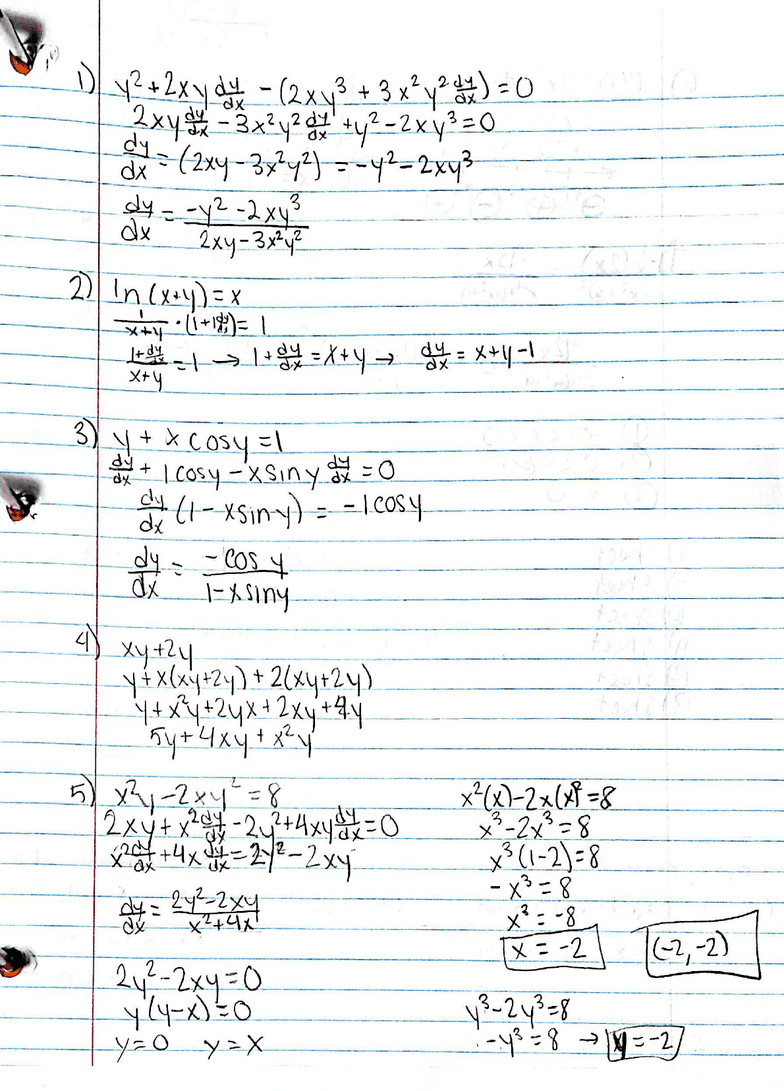 1) y² + 2xy dy/dx - (2xy³ + 3x²y² dy/dx) = 0
2xy dy/dx - 3x²y² dy/dx + y² - 2xy³ = 0
dy/dx = (2xy - 3x²y²) = -y² - 2xy³
dy/dx = (-y² - 2xy³)/(2xy - 3x²y²)
2) ln(x+y) = x
1/(x+y) · (1 + 1 dy/dx) = 1
(1 + dy/dx)/(x+y) = 1 → 1 + dy/dx = x+y → dy/dx = x+y-1
3) y + x cosy = 1
dy/dx + 1cosy - x siny dy/dx = 0
dy/dx (1 - xsiny) = -1cosy
dy/dx = -cos y/(1-x siny)
4) xy+2y
y+x(xy+2y) + 2(xy+2y)
y+x²y+2yx+2xy+4y
5y+4xy+x²y
5) x²y - 2xy² = 8
2xy + x² dy/dx - 2y² + 4xy dy/dx = 0
x² dy/dx + 4x dy/dx = 2y² - 2xy
dy/dx = (2y²-2xy)/(x²+4x)
2y² - 2xy = 0
y(y-x) = 0
y=0 y=x
x²(x) - 2x(x)² = 8
x³ - 2x³ = 8
x³(1-2) = 8
-x³ = 8
x³ = -8
x = -2 (-2,-2)
y³ - 2y³ = 8
-y³ = 8 → y = -2